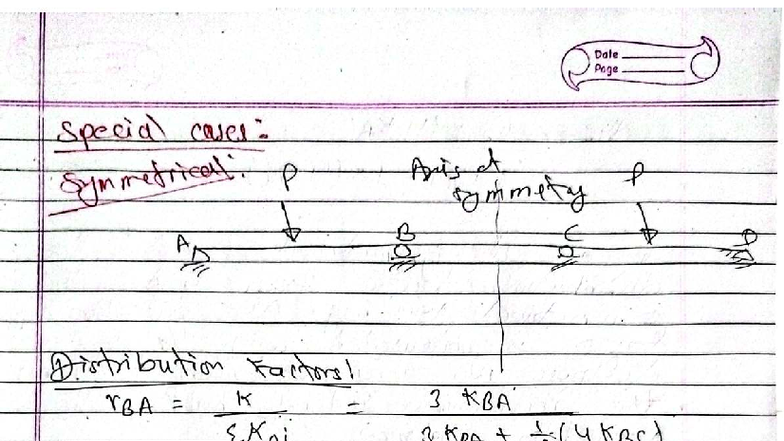 Date
Page
Special cases:
Symmetrical:
P
Axis of
symmetry
P
A
B
C
D
Distribution Factors!
rBA = K / ΣKni = 3 KBA / 3 KBA + 1/2 (4 KBC)